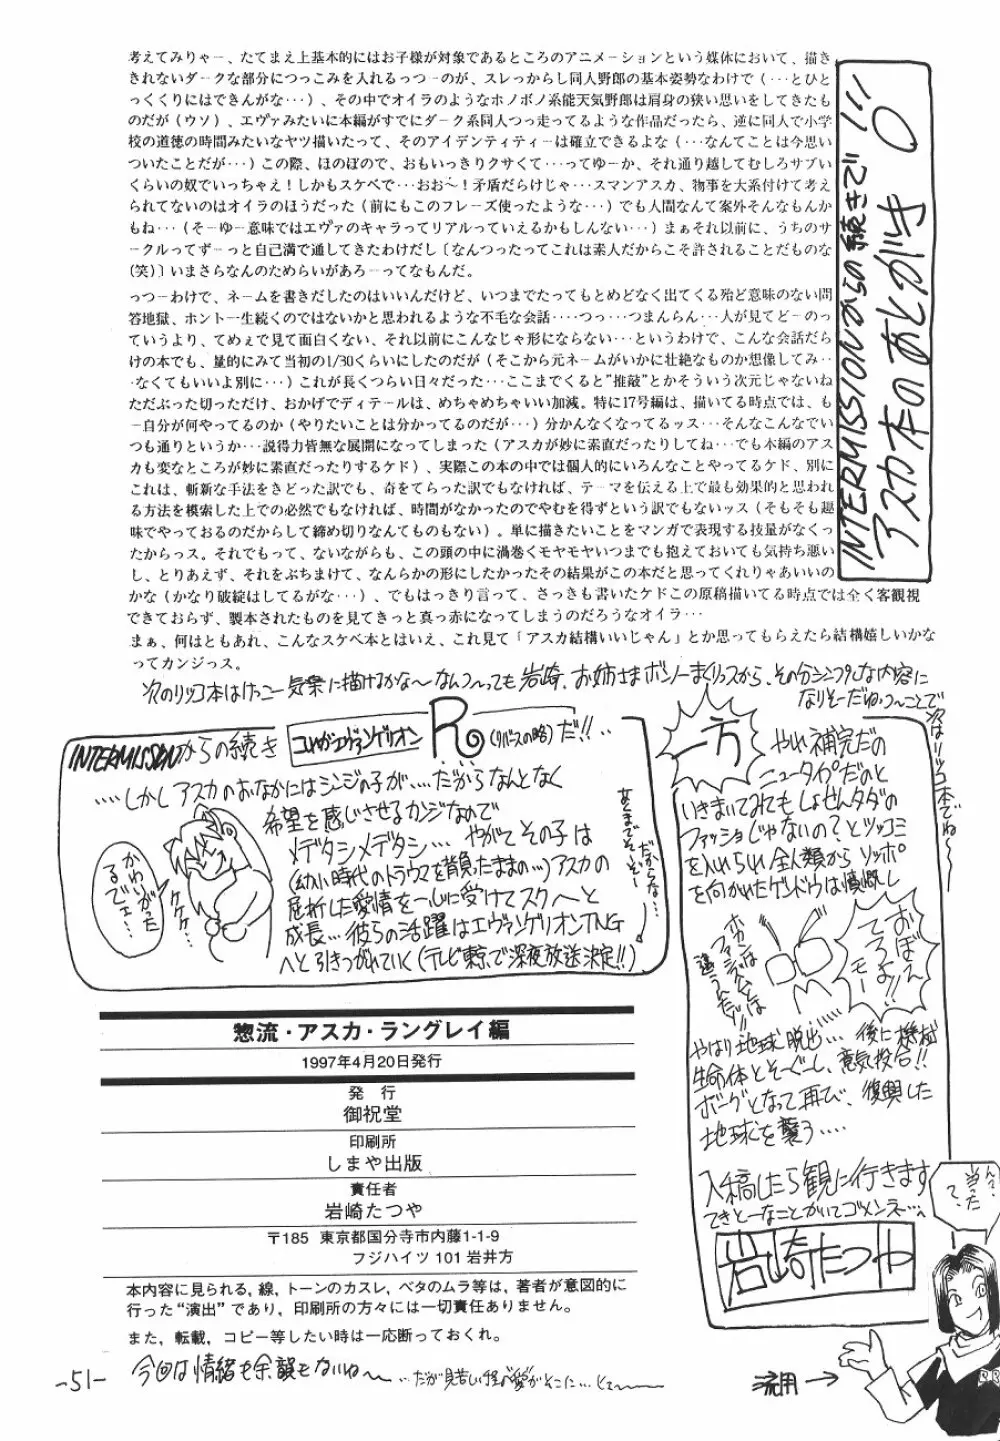 INTERMISSIONからの続きで!!!
アスカ本のあとがき
考えてみりゃー、たてまえ上基本的にはお子様が対象であるところのアニメーションという媒体において、描き
きれないダークな部分につっこみを入れるっつーのが、スレっからし同人野郎の基本姿勢なわけで(・・・とひと
っくくりにはできんがな・・・)、その中でオイラのようなホノボノ系能天気野郎は肩身の狭い思いをしてきたも
のだが(ウソ)、エヴァみたいに本編がすでにダーク系同人つっ走ってるような作品だったら、逆に同人で小学
校の道徳の時間みたいなヤツ描いたって、そのアイデンティティーは確立できるよな(・・・なんてことは今思い
ついたことだが・・・)この際、ほのぼので、おもいっきりクサくて・・・ってゆーか、それ通り越してむしろサブい
くらいの奴でいっちゃえ!しかもスケベで・・・おお〜!矛盾だらけじゃ・・・スマンアスカ、物事を大系付けて考え
られてないのはオイラのほうだった(前にもこのフレーズ使ったような・・・)でも人間なんて案外そんなもんか
もね・・・(そーゆー意味ではエヴァのキャラってリアルっていえるかもしんない・・・)まぁそれ以前に、うちのサ
ークルってずーっと自己満で通してきたわけだし〔なんつったってこれは素人だからこそ許されることだものな
(笑)〕いまさらなんのためらいがあろーってなもんだ。
っつーわけで、ネームを書きだしたのはいいんだけど、いつまでたってもとめどなく出てくる殆ど意味のない問
答地獄、ホント一生続くのではないかと思われるような不毛な会話・・・・つっ・・・つまんらん・・・人が見てどーのっ
ていうより、てめぇで見て面白くない、それ以前にこんなじゃ形にならない・・・というわけで、こんな会話だら
けの本でも、量的にみて当初の1/30くらいにしたのだが(そこから元ネームがいかに壮絶なものか想像してみ・・
・なくてもいいよ別に・・・)これが長くつらい日々だった・・・ここまでくると"推敲"とかそういう次元じゃないね
ただぶった切っただけ、おかげでディテールは、めちゃめちゃいい加減。特に17号編は、描いてる時点では、も
ー自分が何やってるのか(やりたいことは分かってるのだが・・・)分かんなくなってるッス・・・そんなこんなでい
つも通りというか・・・説得力皆無な展開になってしまった(アスカが妙に素直だったりしてね・・・でも本編のアス
カも変なところが妙に素直だったりするケド)、実際この本の中では個人的にいろんなことやってるケド、別に
これは、斬新な手法をきどった訳でも、奇をてらった訳でもなければ、テーマを伝える上で最も効果的と思われ
る方法を模索した上での必然でもなければ、時間がなかったのでやむを得ずという訳でもないッス(そもそも趣
味でやっておるのだからして締め切りなんてものもない)。単に描きたいことをマンガで表現する技量がなくっ
たからっス。それでもって、ないながらも、この頭の中に渦巻くモヤモヤいつまでも抱えておいても気持ち悪い
し、とりあえず、それをぶちまけて、なんらかの形にしたかったその結果がこの本だと思ってくれりゃあいいの
かな(かなり破綻はしてるがな・・・)、でもはっきり言って、さっきも書いたケドこの原稿描いてる時点では全く客観視
できておらず、製本されたものを見てきっと真っ赤になってしまうのだろうなオイラ・・・
まぁ、何はともあれ、こんなスケベ本とはいえ、これ見て「アスカ結構いいじゃん」とか思ってもらえたら結構嬉しいかな
ってカンジっス。
次のリツコ本はけっこー気楽に描けるかな〜なんつ〜っても岩崎、お姉さまボンノーまくりっスから、その分シンプルな内容に
なりそーだね・つ〜ことで
次はリツコ本でね〜
INTERMISSIONからの続き コレがエヴァンゲリオン R(リバースの略)だ!!・・
・・・・しかしアスカのおなかにはシンジの子が・・・・だからなんとなく
希望を感じさせるカンジなので
メデタシメデタシ・・・ やがてその子は
(幼い時代のトラウマを背負ったままの・・・)アスカの
屈折した愛情を一心に受けてスクスクと
成長・・・彼らの活躍はエヴァンゲリオンTNG
へと引きつがれていく(テレビ東京で深夜放送決定!!)
かわいがった
るでェ・・・
ケケケ・・
だからな・・・
一方
やれ補完だの
ニュータイプだのと
いきまいてみてもしょせんタダの
ファッショじゃないの?とツッコミ
を入れられ全人類からソッポ
を向かれたゲンドウは憤慨し
おぼえ
てろよ!!
モー
ホカンとは
ファシズムとは
違うんだゾ!!
やはり地球脱出・・・ 後に機械
生命体とそーぐーし、意気投合!!
ボーグとなって再び、復興した
地球を襲う・・・・
入稿したら観に行きます
てきとーなことかいてゴメンネ・・・
岩崎たつや
流用→
惣流・アスカ・ラングレイ編
1997年4月20日発行
発 行
御祝堂
印刷所
しまや出版
責任者
岩崎たつや
〒185 東京都国分寺市内藤1-1-9
フジハイツ 101 岩井方
本内容に見られる, 線, トーンのカスレ, ベタのムラ等は, 著者が意図的に
行った“演出”であり, 印刷所の方々には一切責任ありません。
また, 転載, コピー等したい時は一応断っておくれ。
今回は情緒も余韻もないね〜
-51-